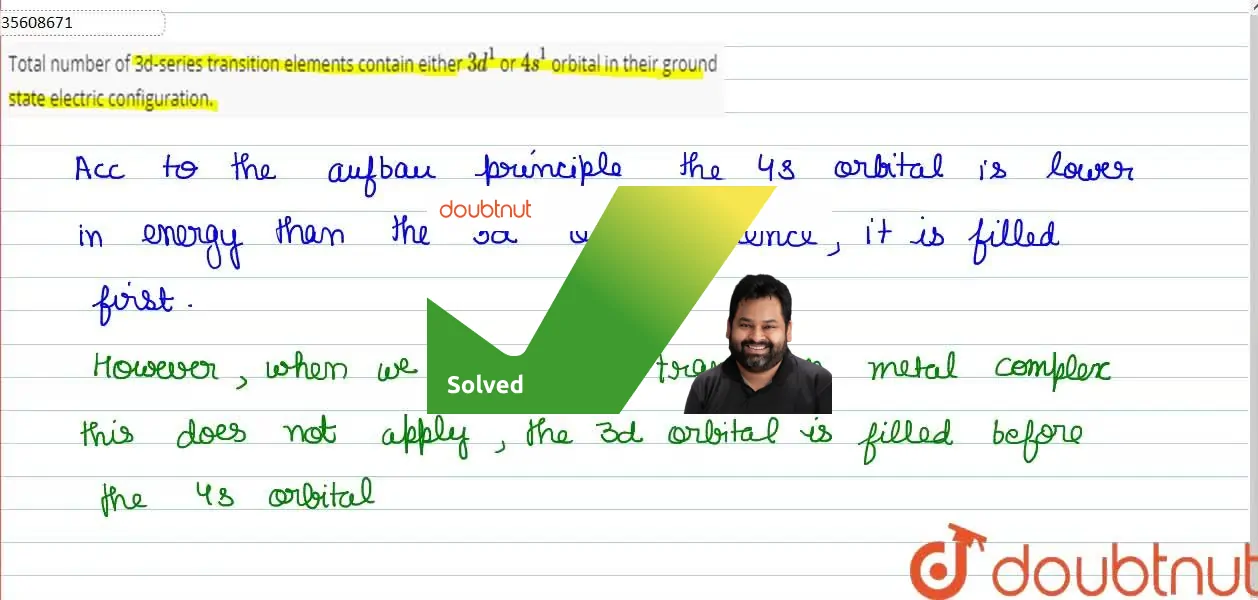 35608671
Total number of 3d-series transition elements contain either 3d¹ or 4s¹ orbital in their ground
state electric configuration.
Acc to the aufbau principle the 4s orbital is lower
doubtnut
in energy than the it is filled
first.
However, when we metal complex
Solved
this does not apply, the 3d orbital is filled before
the 4s orbital
doubtnut